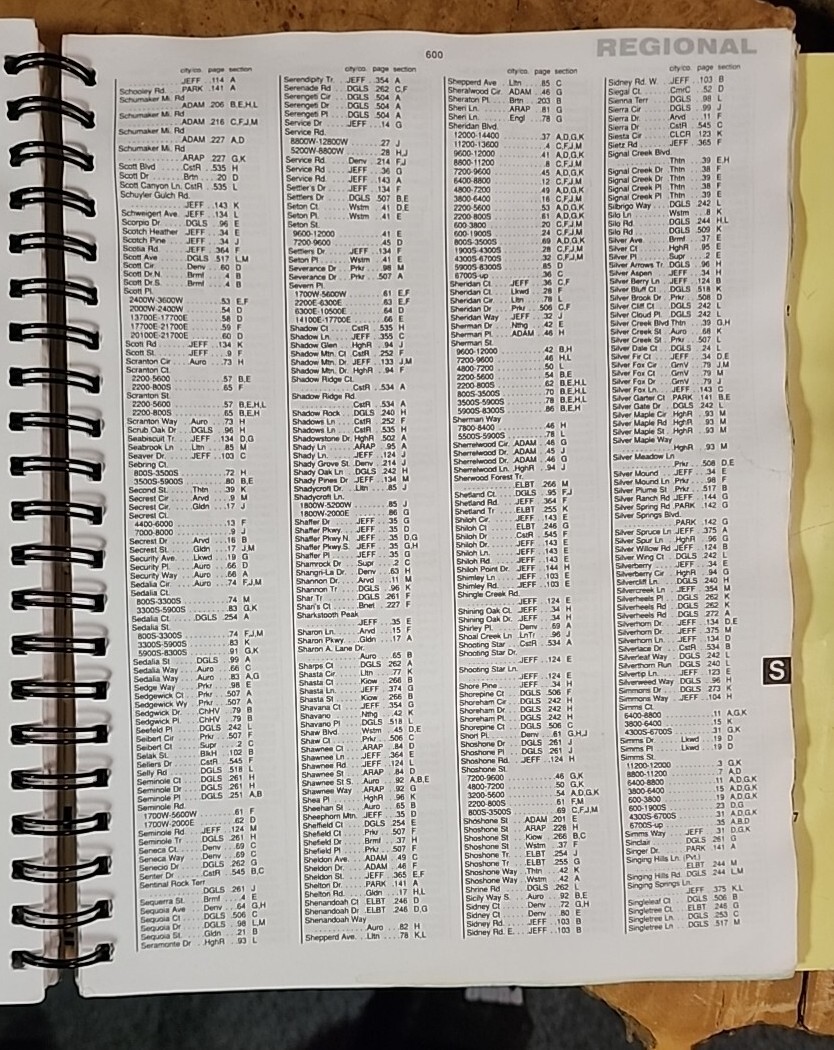 600
REGIONAL
city/co. page section
JEFF . 114 A
Schooley Rd. PARK . 141 A
Schumaker Mi. Rd
ADAM . 206 B,E,H,L
Schumaker Mi. Rd
ADAM . 216 C,F,J,M
Schumaker Mi. Rd
ADAM . 227 A,D
Schumaker Mi. Rd
ARAP . 227 G,K
Scott Blvd CstR . 535 H
Scott Dr Brtn . 20 D
Scott Canyon Ln. CstR . 535 L
Schuyler Gulch Rd.
JEFF . 143 K
Schweigert Ave. JEFF . 134 L
Scorpio Dr. DGLS . 96 E
Scotch Heather JEFF . 34 E
Scotch Pine JEFF . 34 J
Scotia Rd JEFF . 364 F
Scott Ave DGLS . 517 L,M
Scott Cir. Denv . 60 D
Scott Dr.N. Brmf . 4 B
Scott Dr.S. Brmf . 4 B
Scott Pl.
2400W-3600W 53 E,F
2000W-2400W 54 D
13700E-17700E 58 D
17700E-21700E 59 F
20100E-21700E 60 D
Scott Rd JEFF . 134 K
Scott St. JEFF . 9 F
Scranton Cir Auro . 73 H
Scranton Ct.
2200-5600 57 B,E
2200-800S 65 F
Scranton St.
2200-5600 57 B,E,H,L
2200-800S 65 B,E,H
Scranton Way Auro . 73 H
Scrub Oak Dr DGLS . 96 H
Seabiscuit Tr. JEFF . 134 D,G
Seabrook Ln Ltln . 85 M
Seaver Dr. JEFF . 103 C
Sebring Ct.
800S-3500S 72 H
3500S-5900S 80 B,E
Second St. Thtn . 39 K
Secrest Cir. Arvd . 9 M
Secrest Cir. Gldn . 17 J
Secrest Ct.
4400-6000 13 F
7000-8000 9 J
Secrest Dr. Arvd . 16 B
Secrest St. Gldn . 17 J,M
Security Ave. Lkwd . 19 G
Security Pl. Auro . 66 D
Security Way Auro . 66 A
Sedalia Cir Auro . 74 F,J,M
Sedalia Ct.
800S-3300S 74 M
3300S-5900S 83 G,K
Sedalia Ct. DGLS . 254 A
Sedalia St.
800S-3300S 74 F,J,M
3300S-5900S 83 K
5900S-8300S 91 G,K
Sedalia St. DGLS . 99 A
Sedalia Way Auro . 66 C
Sedalia Way Auro . 83 A,G
Sedge Way Prkr . 98 E
Sedgewick Ct. Prkr . 507 A
Sedgewick Wy Prkr . 507 A
Sedgwick Dr. ChHV . 79 B
Sedgwick Pl. ChHV . 79 B
Seefeld Pl DGLS . 242 L
Seibert Cir Prkr . 507 F
Seibert Ct Supr . 2 C
Selak St. BlkH . 102 B
Sellers Dr CstR . 545 F
Selly Rd DGLS . 518 L
Seminole Ct DGLS . 261 H
Seminole Dr DGLS . 261 H
Seminole Pl DGLS . 251 A,B
Seminole Rd.
1700W-5600W 61 F
1700W-2000E 62 D
Seminole Rd. JEFF . 124 M
Seminole Tr DGLS . 261 H
Seneca Ct. Denv . 69 C
Seneca Way Denv . 69 C
Senecio Dr DGLS . 262 G
Senter Dr CstR . 545 B,C
Sentinal Rock Terr
DGLS . 261 J
Sequerra St. Brmf . 4 E
Sequoia Ave Denv . 64 G,H
Sequoia Ct DGLS . 506 C
Sequoia Dr DGLS . 98 L,M
Sequoia St. Gldn . 21 B
Seramonte Dr. HghR . 93 L
city/co. page section
Serendipity Tr. JEFF . 354 A
Serenade Rd DGLS . 262 C,F
Serengeti Cir. DGLS . 504 A
Serengeti Dr DGLS . 504 A
Serengeti Pl DGLS . 504 A
Service Dr JEFF . 14 G
Service Rd.
8800W-12800W 27 J
5200W-8800W 28 H,J
Service Rd. Denv . 214 F,J
Service Rd. JEFF . 36 G
Service Rd. JEFF . 143 A
Settler's Dr JEFF . 134 F
Settlers Dr DGLS . 507 B,E
Seton Ct. Wstm . 41 D,E
Seton Pl. Wstm . 41 E
Seton St.
9600-12000 41 E
7200-9600 45 D
Settlers Dr. JEFF . 134 F
Seton Pl Wstm . 41 E
Severance Dr Prkr . 98 M
Severance Dr Prkr . 507 A
Severn Pl.
1700W-5600W 61 E,F
2200E-6300E 63 E,F
6300E-10500E 64 D
14100E-17700E 66 E
Shadow Ct CstR . 535 H
Shadow Ln. JEFF . 355 C
Shadow Glen HghR . 94 J
Shadow Mtn. Ct CstR . 252 F
Shadow Mtn. Dr. JEFF . 133 J,M
Shadow Mtn. Dr. HghR . 94 F
Shadow Ridge Ct.
CstR . 534 A
Shadow Ridge Rd.
CstR . 534 A
Shadow Rock DGLS . 240 H
Shadows Ln CstR . 252 F
Shadows Ln CstR . 535 H
Shadowstone Dr. HghR . 502 A
Shady Ln ARAP . 95 A
Shady Ln. JEFF . 124 J
Shady Grove St. Denv . 214 J
Shady Oak Ln DGLS . 242 H
Shady Pines Dr JEFF . 134 M
Shadycroft Dr. Ltln . 85 J
Shadycroft Ln.
1800W-5200W 85 J
1800W-2000E 86 G
Shaffer Dr JEFF . 35 G
Shaffer Pkwy JEFF . 35 D
Shaffer Pkwy N JEFF . 35 D,G
Shaffer Pkwy S JEFF . 35 G,H
Shaffer Pl JEFF . 35 G
Shamrock Dr Supr . 2 C
Shangri-La Dr. Denv . 63 H
Shannon Dr. Arvd . 11 M
Shannon Tr DGLS . 96 K
Shar Tr. DGLS . 261 F
Shari's Ct Bnet . 227 F
Sharkstooth Peak
JEFF . 35 E
Sharon Ln. Arvd . 15 F
Sharon Pkwy. Gldn . 17 A
Sharon A. Lane Dr.
Auro . 65 B
Sharps Ct DGLS . 262 A
Shasta Cir. Ltln . 77 K
Shasta Ct Kiow . 266 B
Shasta Ln. JEFF . 374 G
Shasta St Kiow . 266 B
Shavana Ct JEFF . 354 G
Shavano Nthg . 42 K
Shavano Pl DGLS . 518 L
Shaw Blvd Wstm . 45 D,E
Shaw Ct. Prkr . 506 C
Shawnee Ct ARAP . 84 D
Shawnee Ln JEFF . 364 E
Shawnee Rd JEFF . 124 L
Shawnee St ARAP . 84 D
Shawnee St S. Auro . 92 A,B,E
Shawnee Way ARAP . 92 G
Shea Pl HghR . 96 K
Sheehan St Auro . 65 B
Sheephorn Mtn. JEFF . 35 D
Sheffield Ct DGLS . 254 E
Shefield Ct Prkr . 507 F
Shefield Dr Brmf . 37 H
Shefield Pl Prkr . 507 F
Sheldon Ave ADAM . 49 C
Sheldon Dr ADAM . 46 E
Sheldon St. JEFF . 365 E,F
Shelton Dr. PARK . 141 A
Shelton Rd. Gldn . 17 H,L
Shenandoah Ct ELBT . 246 D
Shenandoah Dr ELBT . 246 D,G
Shenandoah Way
Auro . 82 H
Shepperd Ave Ltln . 78 K,L
city/co. page section
Shepperd Ave Ltln . 85 C
Sheralwood Cir. ADAM . 46 G
Sheraton Pl. Brtn . 203 B
Sheri Ln. ARAP . 81 G
Sheri Ln. Engl . 78 G
Sheridan Blvd.
12000-14400 37 A,D,G,K
11200-13600 4 C,F,J,M
9600-12000 41 A,D,G,K
8800-11200 8 C,F,J,M
7200-9600 45 A,D,G,K
6400-8800 12 C,F,J,M
4800-7200 49 A,D,G,K
3800-6400 16 C,F,J,M
2200-5600 53 A,D,G,K
2200-800S 61 A,D,G,K
600-3800 20 C,F,J,M
600-1900S 24 C,F,J,M
800S-3500S 69 A,D,G,K
1900S-4300S 28 C,F,J,M
4300S-6700S 32 C,F,J,M
5900S-8300S 85 D
6700S-up 36 C
Sheridan Ct JEFF . 36 C,F
Sheridan Ct. Lkwd . 28 F
Sheridan Cir. Ltln . 78 L
Sheridan Dr Prkr . 506 C,F
Sheridan Way JEFF . 32 J
Sherman Dr. Nthg . 42 E
Sherman Pl. ADAM . 46 H
Sherman St.
9600-12000 42 B,H
7200-9600 46 H,L
4800-7200 50 L
2200-5600 54 B,E
2200-800S 62 B,E,H,L
800S-3500S 70 B,E,H,L
3500S-5900S 78 B,E,H,L
5900S-8300S 86 B,E,H
Sherman Way
7800-8400 46 H
5500S-5900S 78 L
Sherrelwood Cir. ADAM . 46 G
Sherrelwood Dr. ADAM . 45 J
Sherrelwood Dr. ADAM . 46 G
Sherrelwood Ln. HghR . 94 J
Sherwood Forest Tr.
ELBT . 266 M
Shetland Ct. DGLS . 95 F,J
Shetland Rd. JEFF . 364 F
Shetland Tr ELBT . 255 K
Shiloh Cir. JEFF . 143 E
Shiloh Ct ELBT . 246 G
Shiloh Dr CstR . 545 F
Shiloh Dr. JEFF . 143 E
Shiloh Ln. JEFF . 143 E
Shiloh Rd JEFF . 143 E
Shiloh Point Dr. JEFF . 144 H
Shimley Ln JEFF . 103 E
Shimley Rd. JEFF . 103 E
Shingle Creek Rd.
JEFF . 124 E
Shining Oak Ct. JEFF . 34 H
Shining Oak Dr. JEFF . 34 H
Shirley Pl. Denv . 69 A
Shoal Creek Ln LnTr . 96 J
Shooting Star CstR . 534 A
Shooting Star Dr.
JEFF . 124 E
Shooting Star Ln.
JEFF . 124 E
Shore Pine JEFF . 34 H
Shorepine Ct DGLS . 506 F
Shoreham Cir DGLS . 242 H
Shoreham Dr. DGLS . 242 H
Shoreham Pl DGLS . 242 H
Shorepine Ct DGLS . 506 C
Short Pl. Denv . 61 G,H,J
Shoshone Dr DGLS . 261 J
Shoshone Pl DGLS . 261 J
Shoshone Rd. JEFF . 124 H
Shoshone St.
7200-9600 46 G,K
4800-7200 50 G,K
3200-5600 54 A,D,G,K
2200-800S 61 F,M
800S-3500S 69 C,F,J,M
Shoshone St ADAM . 201 E
Shoshone St ARAP . 228 H
Shoshone St Kiow . 266 B,C
Shoshone St. Wstm . 37 F
Shoshone Tr. ELBT . 254 J
Shoshone Tr ELBT . 255 G
Shoshone Way Thtn . 42 K
Shoshone Way Wstm . 42 A
Shrine Rd DGLS . 262 L
Sicily Way S. Auro . 92 B,E
Sidney Ct Denv . 72 G,H
Sidney Ct Denv . 80 E
Sidney Rd. JEFF . 103 B
Sidney Rd. E. JEFF . 103 B
city/co. page section
Sidney Rd. W. JEFF . 103 B
Siegal Ct. CmrC . 52 D
Sienna Terr DGLS . 98 L
Sierra Cir. DGLS . 99 J
Sierra Dr. Arvd . 11 F
Sierra Dr CstR . 545 C
Siesta Cir CLCR . 123 K
Sietz Rd JEFF . 365 F
Signal Creek Blvd
Thtn . 39 E,H
Signal Creek Dr Thtn . 38 F
Signal Creek Dr Thtn . 39 E
Signal Creek Pl Thtn . 38 F
Signal Creek Pl Thtn . 39 E
Silbrigo Way DGLS . 242 L
Silo Ln Wstm . 8 K
Silo Rd DGLS . 244 H,L
Silo Rd. DGLS . 509 K
Silver Ave. Brmf . 37 E
Silver Ct HghR . 95 E
Silver Pl Supr . 2 E
Silver Arrows Tr. DGLS . 96 H
Silver Aspen JEFF . 34 H
Silver Berry Ln JEFF . 124 B
Silver Bluff Ct DGLS . 518 K
Silver Brook Dr Prkr . 508 D
Silver Cliff Ct DGLS . 242 L
Silver Cloud Pl. DGLS . 242 L
Silver Creek Blvd Thtn . 39 G,H
Silver Creek St Auro . 68 K
Silver Creek St. Prkr . 507 L
Silver Dale Ct DGLS . 24 L
Silver Fir Ct JEFF . 34 D,E
Silver Fox Cir GrnV . 79 J,M
Silver Fox Ct GrnV . 79 M
Silver Fox Dr GrnV . 79 J
Silver Fox Ln. JEFF . 143 C
Silver Garter Ct PARK . 141 B,E
Silver Gate Dr DGLS . 242 L
Silver Maple Cir HghR . 93 M
Silver Maple Rd HghR . 93 M
Silver Maple St HghR . 93 M
Silver Maple Way
HghR . 93 M
Silver Meadow Ln
Prkr . 508 D,E
Silver Mound JEFF . 34 E
Silver Mound Ln Prkr . 98 F
Silver Plume St Prkr . 517 B
Silver Ranch Rd JEFF . 144 G
Silver Spring Rd. PARK . 142 G
Silver Springs Blvd.
PARK . 142 G
Silver Spruce Ln. JEFF . 375 A
Silver Spur Ln HghR . 96 G
Silver Willow Rd JEFF . 124 B
Silver Wing Ct. DGLS . 242 L
Silverberry JEFF . 34 E
Silverberry Cir. HghR . 94 G
Silvercliff Ln. DGLS . 240 H
Silvercreek Ln. JEFF . 354 M
Silverheels Pl DGLS . 262 K
Silverheels Rd DGLS . 262 K
Silverheels Rd DGLS . 272 A
Silverhorn Dr. JEFF . 134 D,E
Silverhorn Dr. JEFF . 375 M
Silverhorn Ln. JEFF . 134 D
Silverlace Dr CstR . 534 B
Silverleaf Way DGLS . 242 L
Silverthorn Run DGLS . 240 L
Silvertip Ln. JEFF . 123 E
Silverweed Way DGLS . 96 H
Simmons Dr DGLS . 273 K
Simmons Way. JEFF . 104 H
Simms Ct.
6400-8800 11 A,G,K
3800-6400 15 K
4300S-6700S 31 G,K
Simms Dr. Lkwd . 19 D
Simms Pl Lkwd . 19 D
Simms St.
11200-12000 3 G,K
8800-11200 7 A,D
6400-8800 11 A,D,G,K
3800-6400 15 A,D,G,K
600-3800 19 A,D,G,K
600-1900S 23 D,G
4300S-6700S 31 A,D,G,K
6700S-up 35 A,B,D
Simms Way JEFF . 31 D,G,K
Sinclair DGLS . 261 G
Singer Dr. PARK . 141 A
Singing Hills Ln. (Pvt.)
ELBT . 244 M
Singing Hills Rd. DGLS . 244 L,M
Singing Springs Ln.
JEFF . 375 K,L
Singleleaf Ct DGLS . 506 B
Singletree Ct. ELBT . 246 G
Singletree Ln DGLS . 253 C
Singletree Ln DGLS . 517 M
S